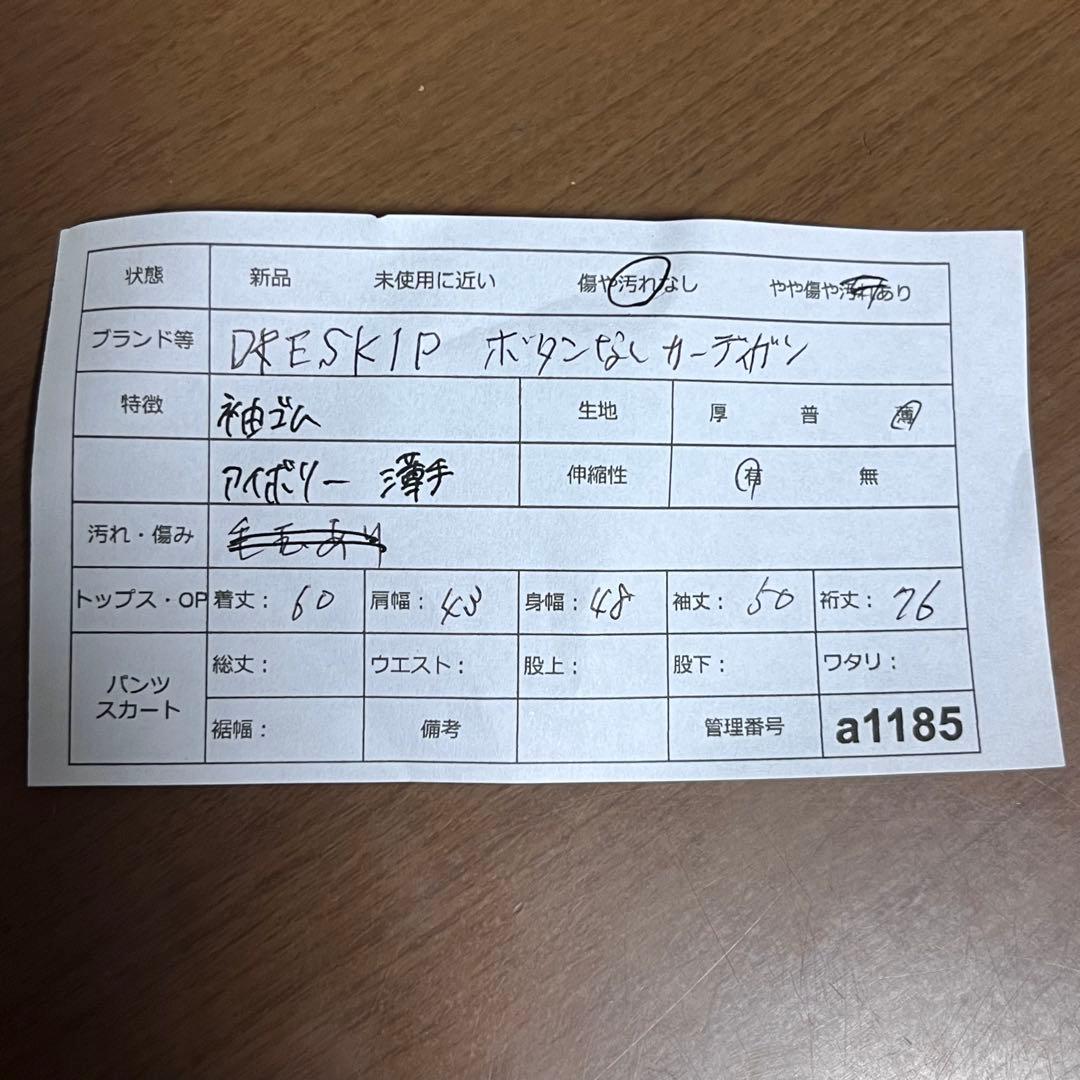 状態 新品 未使用に近い 傷や汚れなし やや傷や汚れあり
ブランド等 DRESKIP ボタンなしカーディガン
特徴 袖ゴム 生地 厚 普 薄
アイボリー 薄手 伸縮性 有 無
汚れ・傷み 毛玉あり
トップス・OP 着丈: 60 肩幅: 43 身幅: 48 袖丈: 50 裄丈: 76
パンツ スカート 総丈: ウエスト: 股上: 股下: ワタリ:
裾幅: 備考 管理番号 a1185